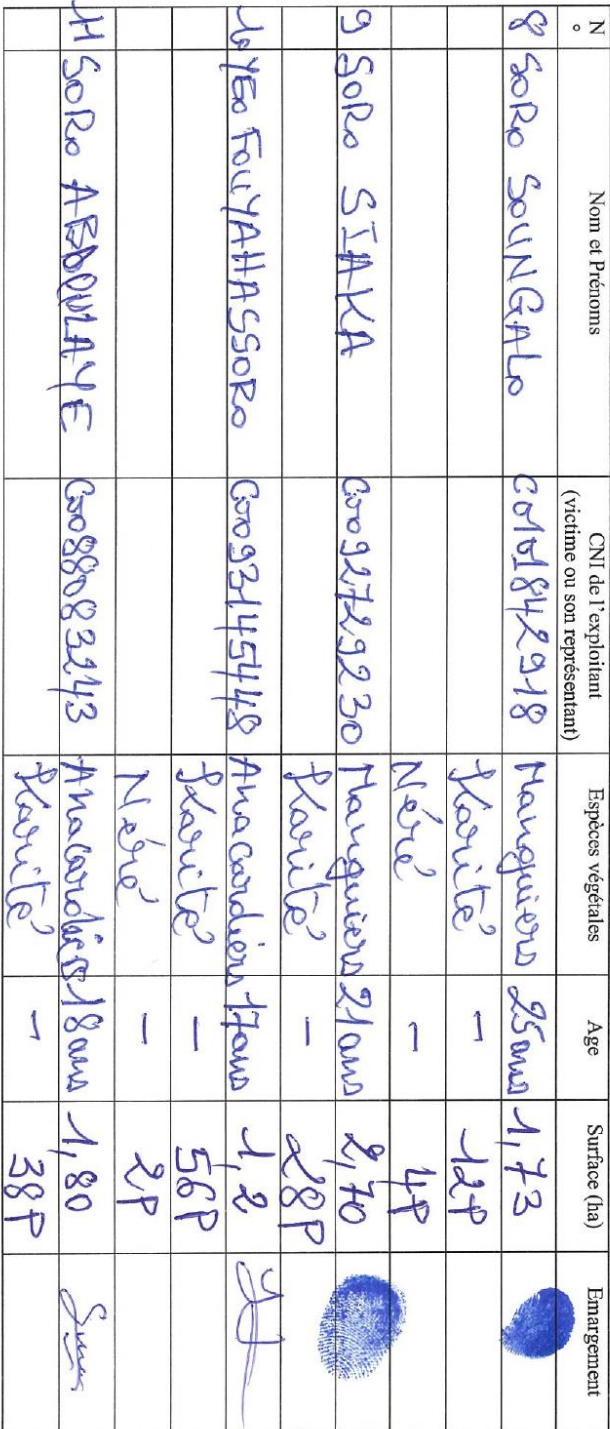 N° Nom et Prénoms CNI de l'exploitant (victime ou son représentant) Espèces végétales Age Surface (ha) Emargement
8 SORO SOUNGALO C0101842918 Manguiers 25 ans 1,73
Karité - 12P
Néré - 4P
9 SORO SIAKA C0092729230 Manguiers 21 ans 2,70
Karité - 28P
10 YEO FOUYAHASSORO C0093145448 Anacardiers 17 ans 1,2
Karité - 56P
Néré - 2P
11 SORO ABDOULAYE C0088083243 Anacardiers 18 ans 1,80
Karité - 38P